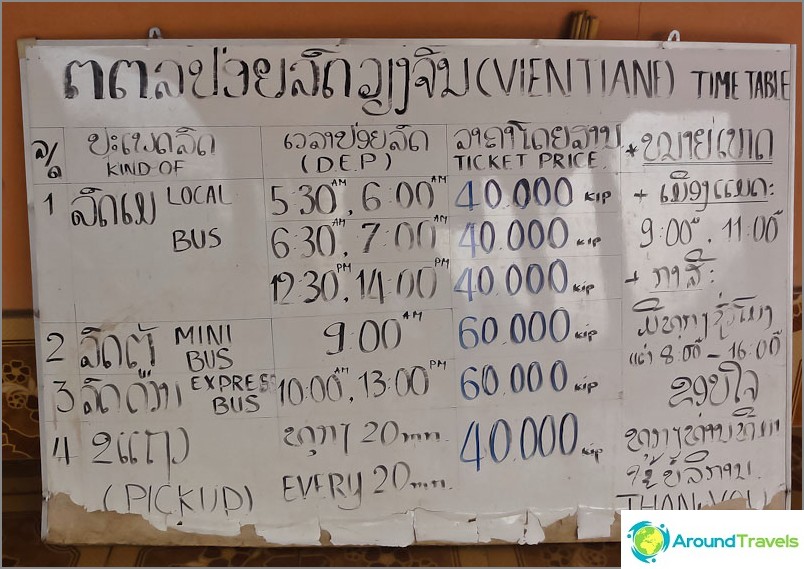 ຕາຕະລາງປ່ອຍລົດວຽງຈັນ (VIENTIANE) TIME TABLE
ລ/ດ ປະເພດລົດ ເວລາປ່ອຍລົດ ລາຄາໂດຍສານ * ໝາຍເຫດ
KIND OF (D.E.P) TICKET PRICE
1 ລົດເມ LOCAL BUS 5:30 AM, 6:00 AM 40.000 KIP
6:30, 7:00 AM 40.000 KIP
12:30 PM, 14:00 PM 40.000 KIP
2 ລົດຕູ້ MINI BUS 9:00 AM 60.000 KIP
3 ລົດດ່ວນ EXPRESS BUS 10:00 AM, 13:00 PM 60.000 KIP
4 (PICKUP) ທຸກໆ 20 ນທ. 40.000 KIP
EVERY 20
+ ເມືອງແມດ:
9:00, 11:00
+ ກາສີ:
ມີທຸກໆຊົ່ວໂມງ
ແຕ່ 8:00 - 16:00
ຂອບໃຈ
ທຸກໆທ່ານທີ່ມາ
ໃຊ້ບໍລິການ
THANK YOU
AroundTravels